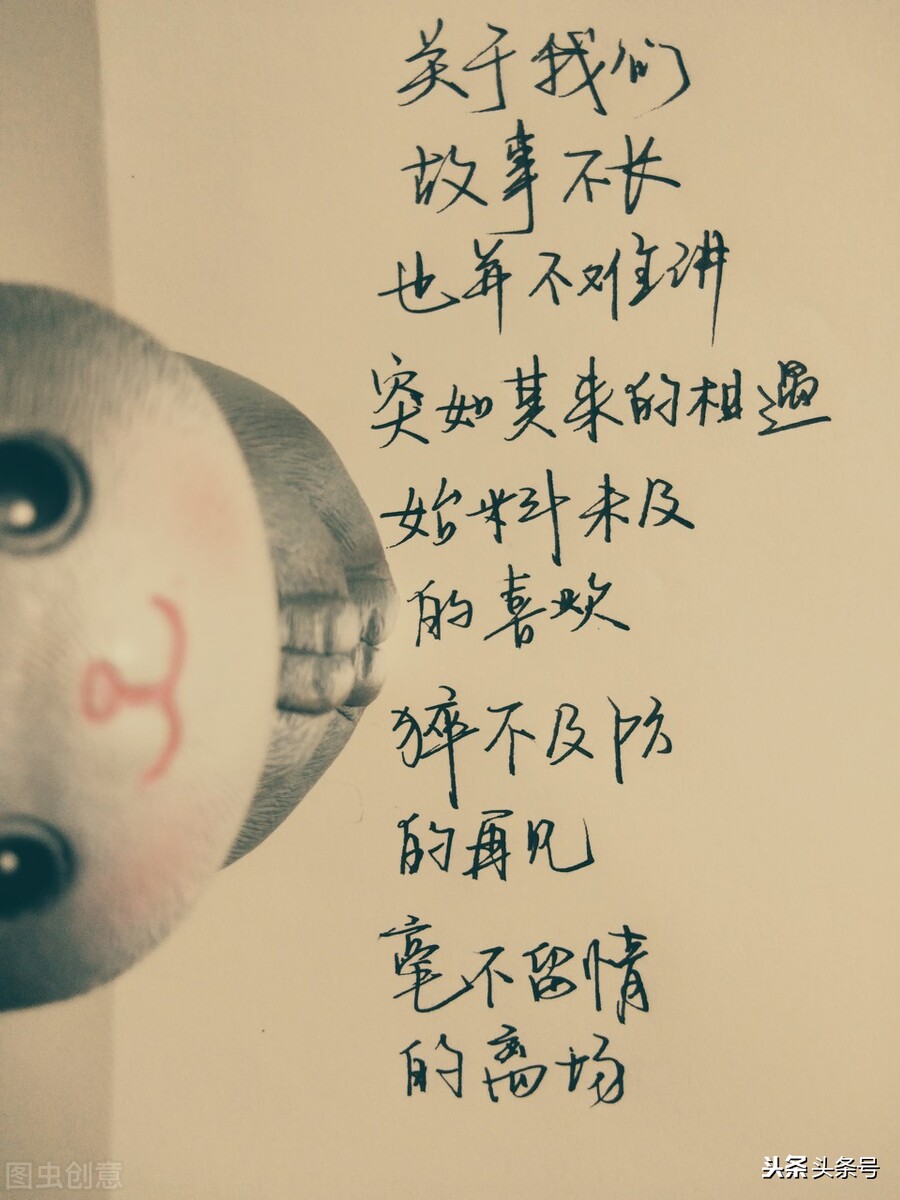 关于我们
故事不长
也并不难讲
突如其来的相遇
始料未及
的喜欢
猝不及防
的再见
毫不留情
的离场
图虫创意
头条 头条号